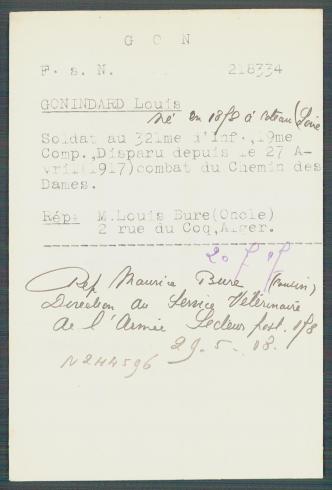 G O N
F. s. N. 218334
GONINDARD Louis
né en 18 à (Loire
Soldat au 321me d'Inf.,19me
Comp.,Disparu depuis le 27 A-
vril(1917)combat du Chemin des
Dames.
Rép: M.Louis Bure(Oncle)
2 rue du Coq,Alger.
Rep Maurice Bure (Cousin)
Direction du Service Vétérinaire
de l'Armée Secteur post.
29.5.18.
N244596